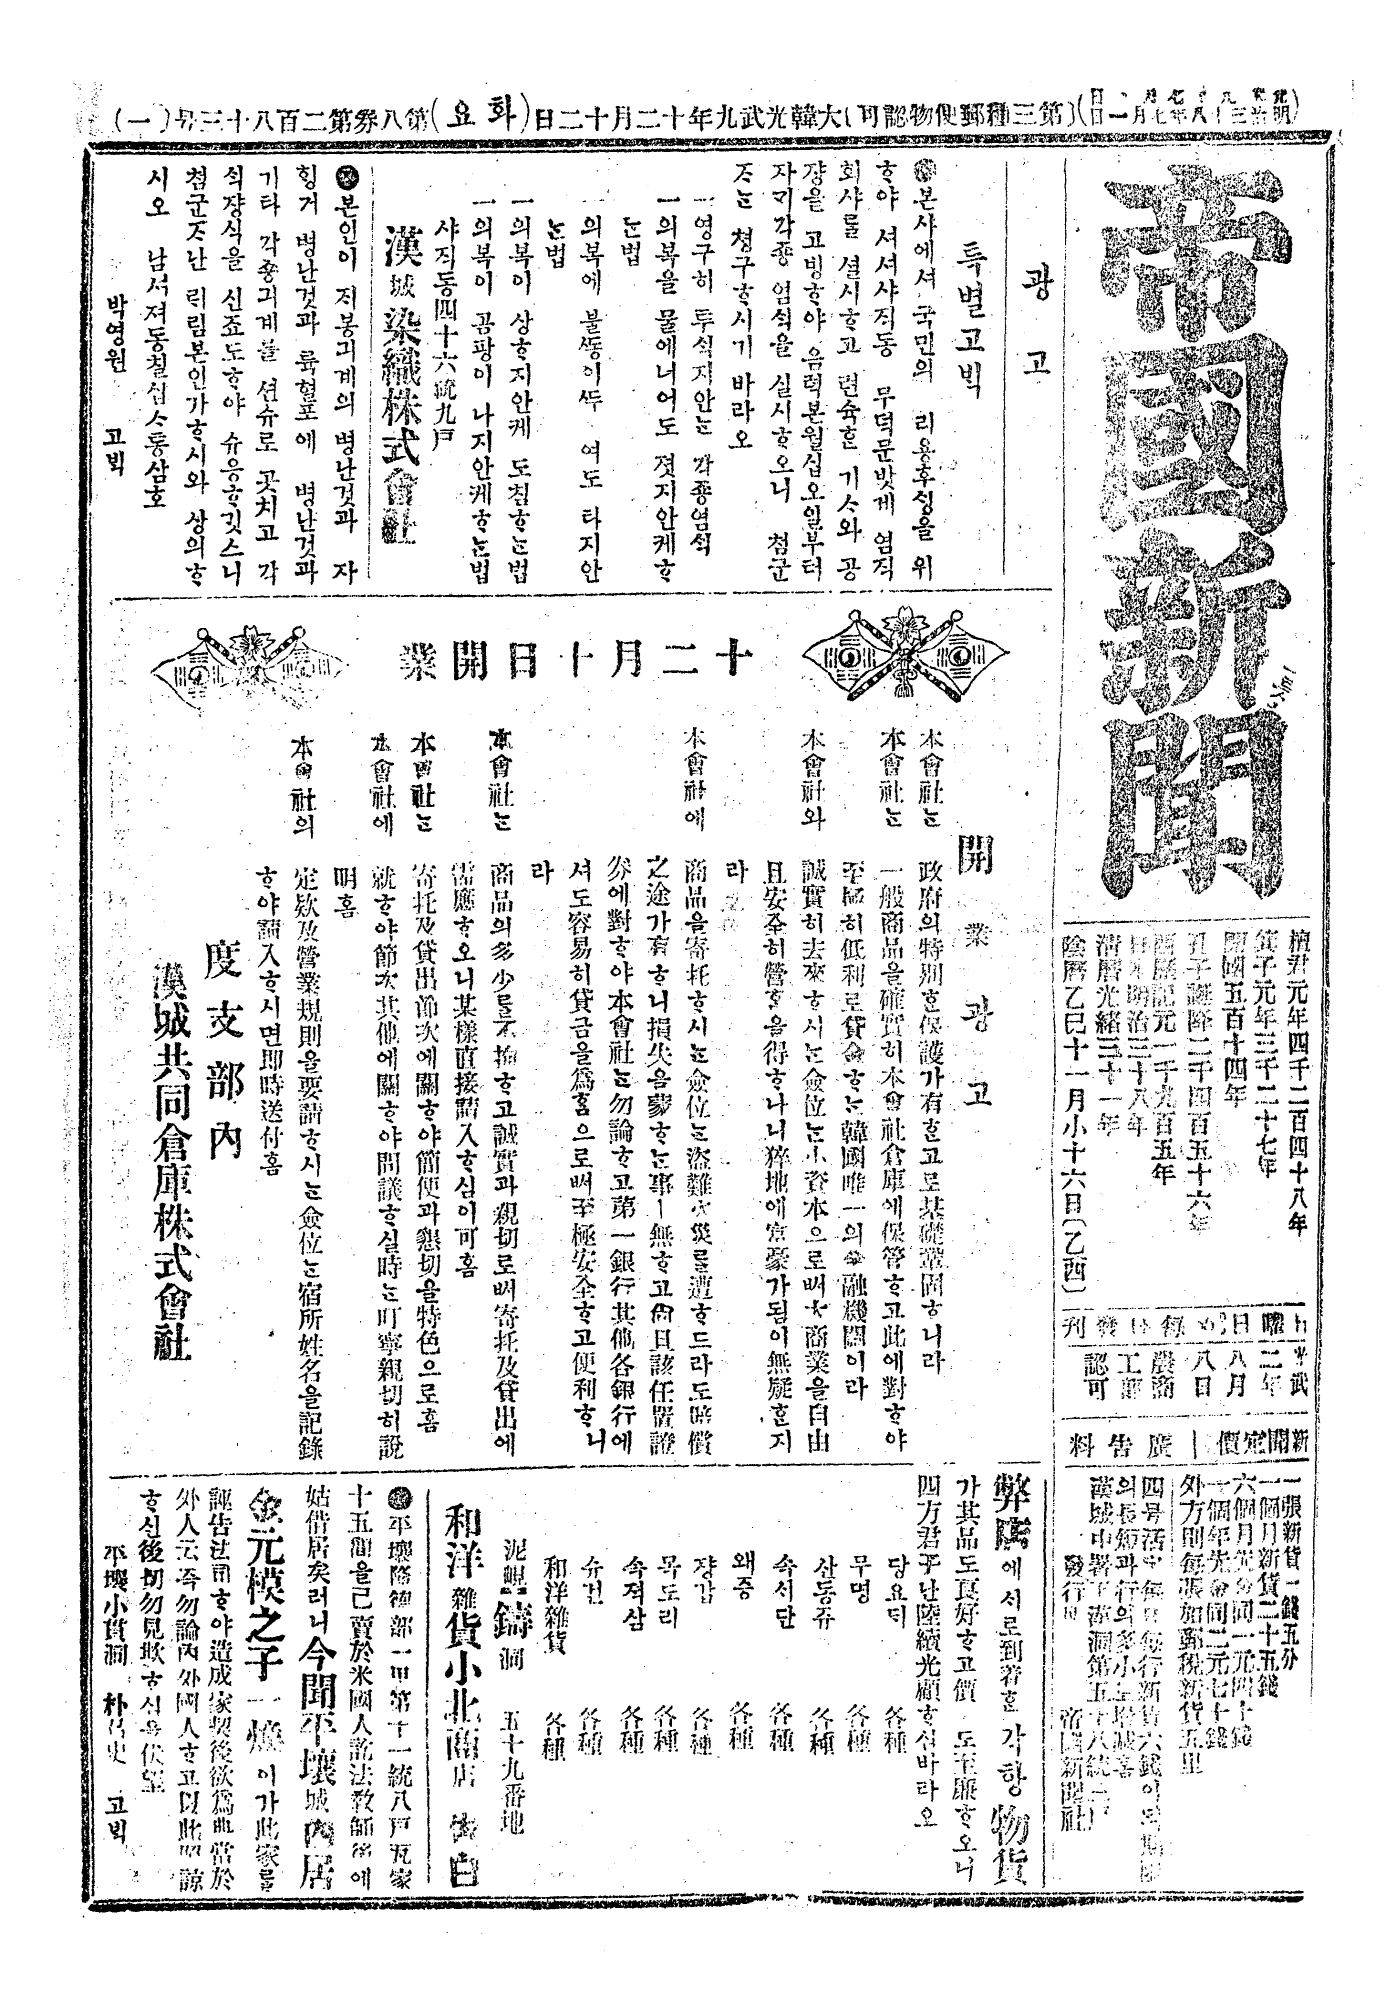 (一) 第八券第二百八十三号 (화요) 大韓光武九年十二月十二日 (第三種郵便物認可)
帝國新聞
檀君元年四千二百四十八年
箕子元年三千二十七年
開國五百十四年
孔子誕降二千四百五十六年
西曆記元一千九百五年
日本明治三十八年
清曆光緖三十一年
陰曆乙巳十一月小十六日(乙酉)
光武二年八月八日農商工部認可
新聞定價 廣告料
一張新貨一錢五分
一個月新貨二十五錢
六個月先金同一元四十錢
一個年先金同二元七十錢
外方則每張加郵稅新貨五里
漢城中署
發行所 帝國新聞社
광고
특별고빅
본샤에셔 국민의 리용후싱을 위
ᄒᆞ야 셔셔샤직동 무덕문밧게 염직
회샤를 셜시ᄒᆞ고 련슉ᄒᆞᆫ 기ᄉᆞ와 공
쟝을 고빙ᄒᆞ야 음력본월십오일부터
자긔각죵 염식을 실시ᄒᆞ오니 쳠군
ᄌᆞᄂᆞᆫ 쳥구ᄒᆞ시기 바라오
一영구히 투식지안ᄂᆞᆫ 각죵염식
一의복을 물에너어도 졋지안케ᄒᆞ
ᄂᆞᆫ법
一의복에 불ᄯᅩᆼ이ᄯᅱ여도 타지안
ᄂᆞᆫ법
一의복이 상ᄒᆞ지안케 도침ᄒᆞᄂᆞᆫ법
一의복이 곰팡이 나지안케ᄒᆞᄂᆞᆫ법
샤직동四十六統九戶
漢城染織株式會社
본인이 지봉긔계의 병난것과 자
힝거 병난것과 륙혈포에 병난것과
기타 각죵긔계를 션슈로 곳치고 각
식쟝식을 신죠도ᄒᆞ야 슈응ᄒᆞ깃스니
쳠군ᄌᆞ난 릭림본인가ᄒᆞ시와 상의ᄒᆞ
시오 남셔져동칠십ᄉᆞ통삼호
박영원 고빅
十二月十日開業
開業광고
本會社ᄂᆞᆫ 政府의特別ᄒᆞᆫ保護가有ᄒᆞᆫ고로基礎鞏固ᄒᆞ니라
本會社ᄂᆞᆫ 一般商品을確實히本會社倉庫에保管ᄒᆞ고此에對ᄒᆞ야
至極히低利로貸金ᄒᆞᄂᆞᆫ韓國唯一의金融機關이라
本會社와 誠實히去來ᄒᆞ시ᄂᆞᆫ僉位ᄂᆞᆫ小資本으로ᄡᅥ大商業을自由
且安全히營ᄒᆞᆷ을得ᄒᆞ나니猝地에富豪가됨이無疑ᄒᆞᆫ지
라
本會社에 商品을寄托ᄒᆞ시ᄂᆞᆫ僉位ᄂᆞᆫ盜難火災를遭ᄒᆞ드라도賠償
之途가有ᄒᆞ니損失을蒙ᄒᆞᄂᆞᆫ事ㅣ無ᄒᆞ고尙且該任置證
券에對ᄒᆞ야本會社ᄂᆞᆫ勿論ᄒᆞ고第一銀行其他各銀行에
셔도容易히貸金을爲홈으로ᄡᅥ至極安全ᄒᆞ고便利ᄒᆞ니
라
本會社ᄂᆞᆫ 商品의多少를不拘ᄒᆞ고誠實과親切로ᄡᅥ寄托及貸出에
需應ᄒᆞ오니某樣直接請入ᄒᆞ심이可홈
本會社ᄂᆞᆫ 寄托及貸出節次에關ᄒᆞ야簡便과懇切을特色으로홈
本會社에 就ᄒᆞ야節次其他에關ᄒᆞ야問議ᄒᆞ실時ᄂᆞᆫ叮寧親切히說
明홈
本會社의 定欵及營業規則을要請ᄒᆞ시ᄂᆞᆫ僉位ᄂᆞᆫ宿所姓名을記錄
ᄒᆞ야請入ᄒᆞ시면卽時送付홈
度支部內
漢城共同倉庫株式會社
弊店에서로到着ᄒᆞᆫ각항物貨
가其品도良好ᄒᆞ고價도至廉ᄒᆞ오니
四方君子난陸續光顧ᄒᆞ심바라오
당요디 各種
무명 各種
산동쥬 各種
속서단 各種
왜증 各種
쟝갑 各種
목도리 各種
속젹삼 各種
슈건 各種
和洋雜貨 各種
泥峴鑄洞 五十九番地
和洋雜貨小北商店 告白
平壤隆德部一里第十一統八戶瓦家
十五間을已賣於米國人訟法敎師偖에
姑借居矣러니今聞平壤城內居
金元模之子一煥이가此家를
誣告法司ᄒᆞ야造成家契後欲爲典當於
外人云즉勿論內外國人ᄒᆞ고以此照諒
ᄒᆞ신後切勿見欺ᄒᆞ심을伏望
平壤小貫洞 朴召史 고빅